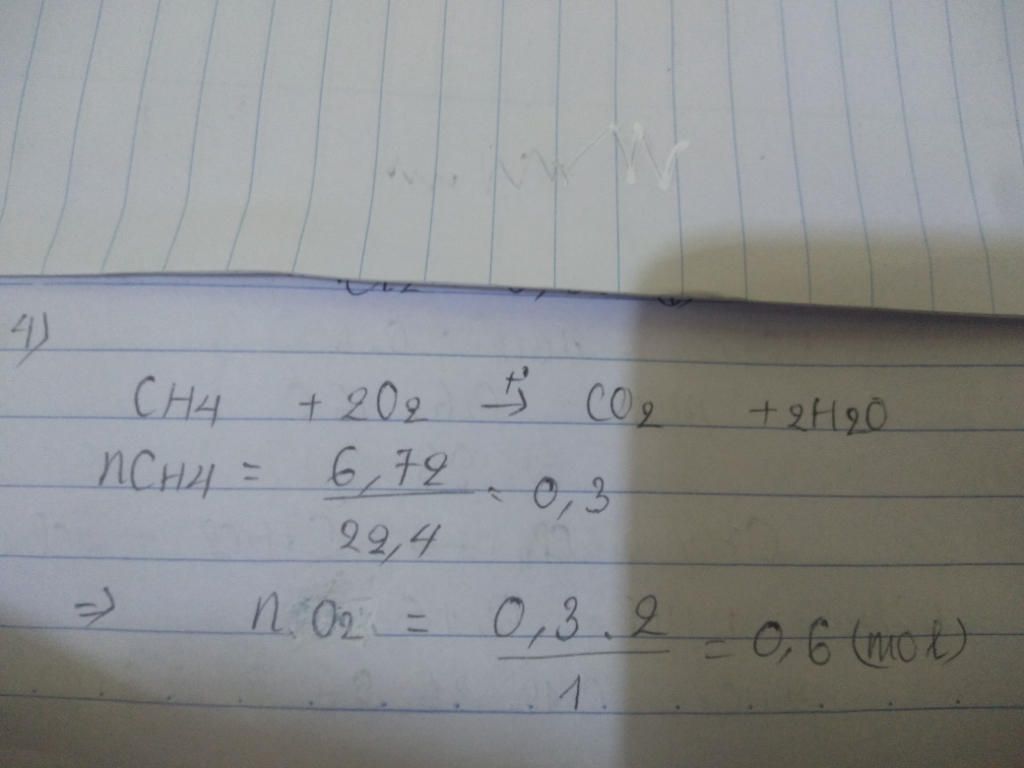 4)
CH4 + 2O2 t°→ CO2 + 2H2O
nCH4 = 6,72 / 22,4 = 0,3
=> nO2 = 0,3.2 / 1 = 0,6 (mol)